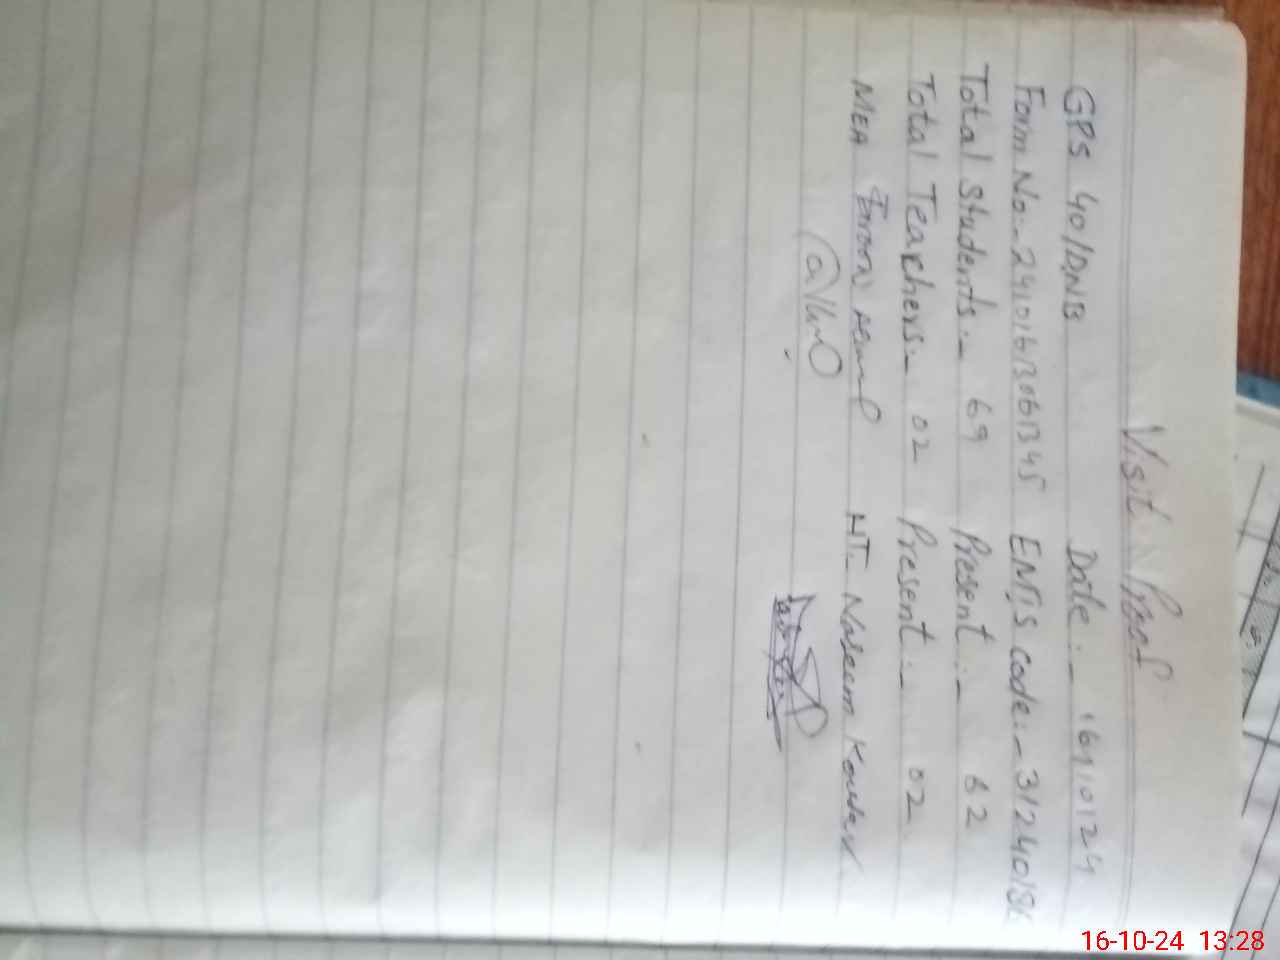 Visit Proof
GPS 40/DNB Date :- 16/10/24
Form No:- 24101613061345 EMIS code:- 312401
Total Students:- 69 Present :- 62
Total Teachers:- 02 Present :- 02
MEA HT- Naseem Kousar
16-10-24 13:28